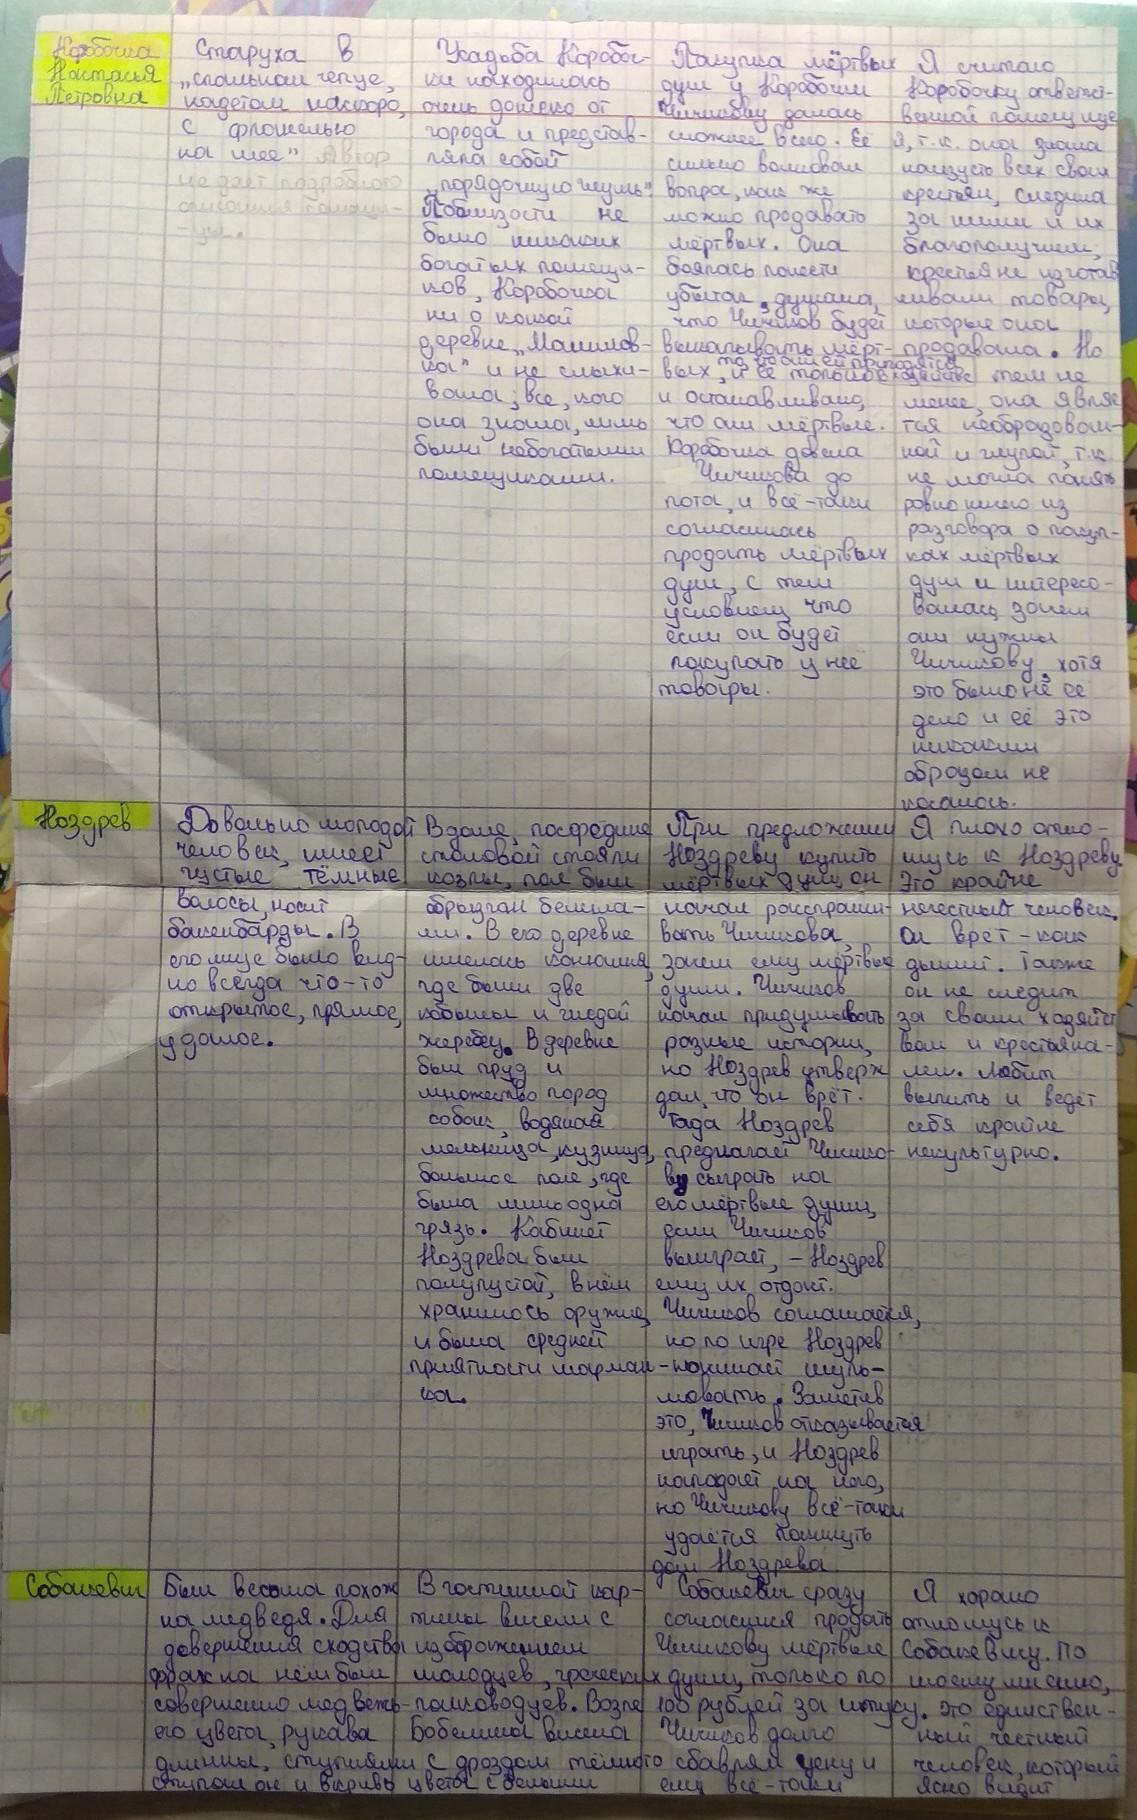 Коробочка
Настасья
Петровна
Старуха в
„спальном чепце,
надетом наскоро,
с фланелью
на шее" Автор
не дает подробного
описания помещи-
-цы.
Усадьба Коробоч-
ки находилась
очень далеко от
города и представ-
ляла собой
„порядочную глушь".
Поблизости не
было никаких
богатых помещи-
ков, Коробочка
ни о какой
деревне „Манилов-
ка" и не слыхи-
вала; все, кого
она знала, лишь
были небогатыми
помещиками.
Покупка мёртвых
душ у Коробочки
Чичикову далась
сложнее всего. Её
сильно волновал
вопрос, как же
можно продавать
мёртвых. Она
боялась понести
убыток, думала,
что Чичиков будет
выкапывать мёрт-
то, что они ей пригодятся
вых, и её только в хозяйстве
и останавливало,
что они мёртвые.
Коробочка довела
Чичикова до
пота, и всё-таки
согласилась
продать мёртвых
душ, с тем
условием, что
если он будет
покупать у неё
товары.
Я считаю
Коробочку ответст-
венной помещице
й, т.к. она знала
наизусть всех своих
крестьян, следила
за ними и их
благополучием;
крестьяне изготав
ливали товары,
которые она
продавала. Но
тем не
менее, она являе
тся необразован-
ной и глупой, т.к.
не могла понять
ровно ничего из
разговора о покуп-
ках мёртвых
душ и интересо-
валась, зачем
они нужны
Чичикову, хотя
это было не её
дело и её это
никаким
образом не
касалось.
Ноздрев
Довольно молодой
человек, имеет
густые тёмные
волосы, носит
бакенбарды. В
его лице было вид-
но всегда что-то
открытое, прямое,
удалое.
В доме, посредине
столовой стояли
козлы, пол был
обрызган белила-
ми. В его деревне
имелась конюшня,
где были две
кобылы и гнедой
жеребец. В деревне
был пруд и
множество пород
собак, водяная
мельница, кузница,
большое поле, где
была лишь одна
грязь. Кабинет
Ноздрева был
полупустой, в нём
хранилось оружие,
и была средней
приятности шарман-
ка.
При предложении
Ноздреву купить
мёртвых душ, он
начал расспраши-
вать Чичикова,
зачем ему мёртвые
души. Чичиков
начал придумывать
разные истории,
но Ноздрев утверж
дал, что он врёт.
Тада Ноздрев
предлагает Чичико-
ву сыграть на
его мёртвые души,
если Чичиков
выиграет, – Ноздрев
ему их отдаст.
Чичиков соглашается,
но по игре Ноздрев
начинает жуль-
мовать. Заметив
это, Чичиков отказывается
играть, и Ноздрев
нападает на него,
но Чичикову всё-таки
удаётся покинуть
дом Ноздрева.
Я плохо отно-
шусь к Ноздреву.
Это крайне
нечестный человек.
Он врёт – как
дышит. Также
он не следит
за своим хозяйст
вом и крестьяна-
ми. Любит
выпить и ведёт
себя крайне
некультурно.
Собакевич
Был весьма похож
на медведя. Для
довершения сходства
фрак на нём был
совершенно медвежь-
его цвета, рукава
длинны, ступнями
ступал он и вкривь
В гостинной кар-
тины висели с
изображением
молодцев, греческих
полководцев. Возле
Бобелина висела
с дроздом тёмного
цвета с белыми
Собакевич сразу
согласился продать
Чичикову мёртвые
души, только по
100 рублей за штуку.
Чичиков долго
сбавлял цену и
ему всё-таки
Я хорошо
отношусь к
Собакевичу. По
моему мнению,
это единствен-
ный честный
человек, который
ясно видит